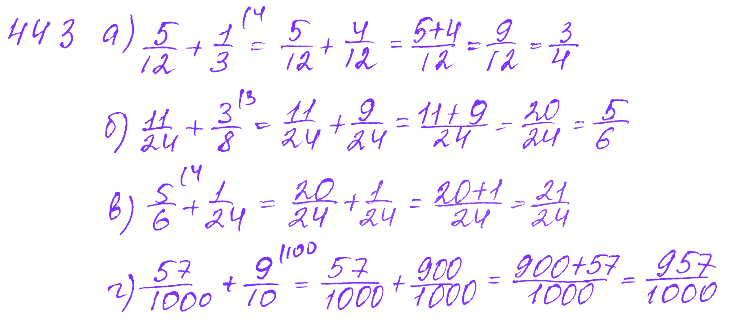 443 а) 5/12 + 1/3 (4 = 5/12 + 4/12 = 5+4/12 = 9/12 = 3/4
б) 11/24 + 3/8 (3 = 11/24 + 9/24 = 11+9/24 = 20/24 = 5/6
в) 5/6 (4 + 1/24 = 20/24 + 1/24 = 20+1/24 = 21/24
г) 57/1000 + 9/10 (100 = 57/1000 + 900/1000 = 900+57/1000 = 957/1000